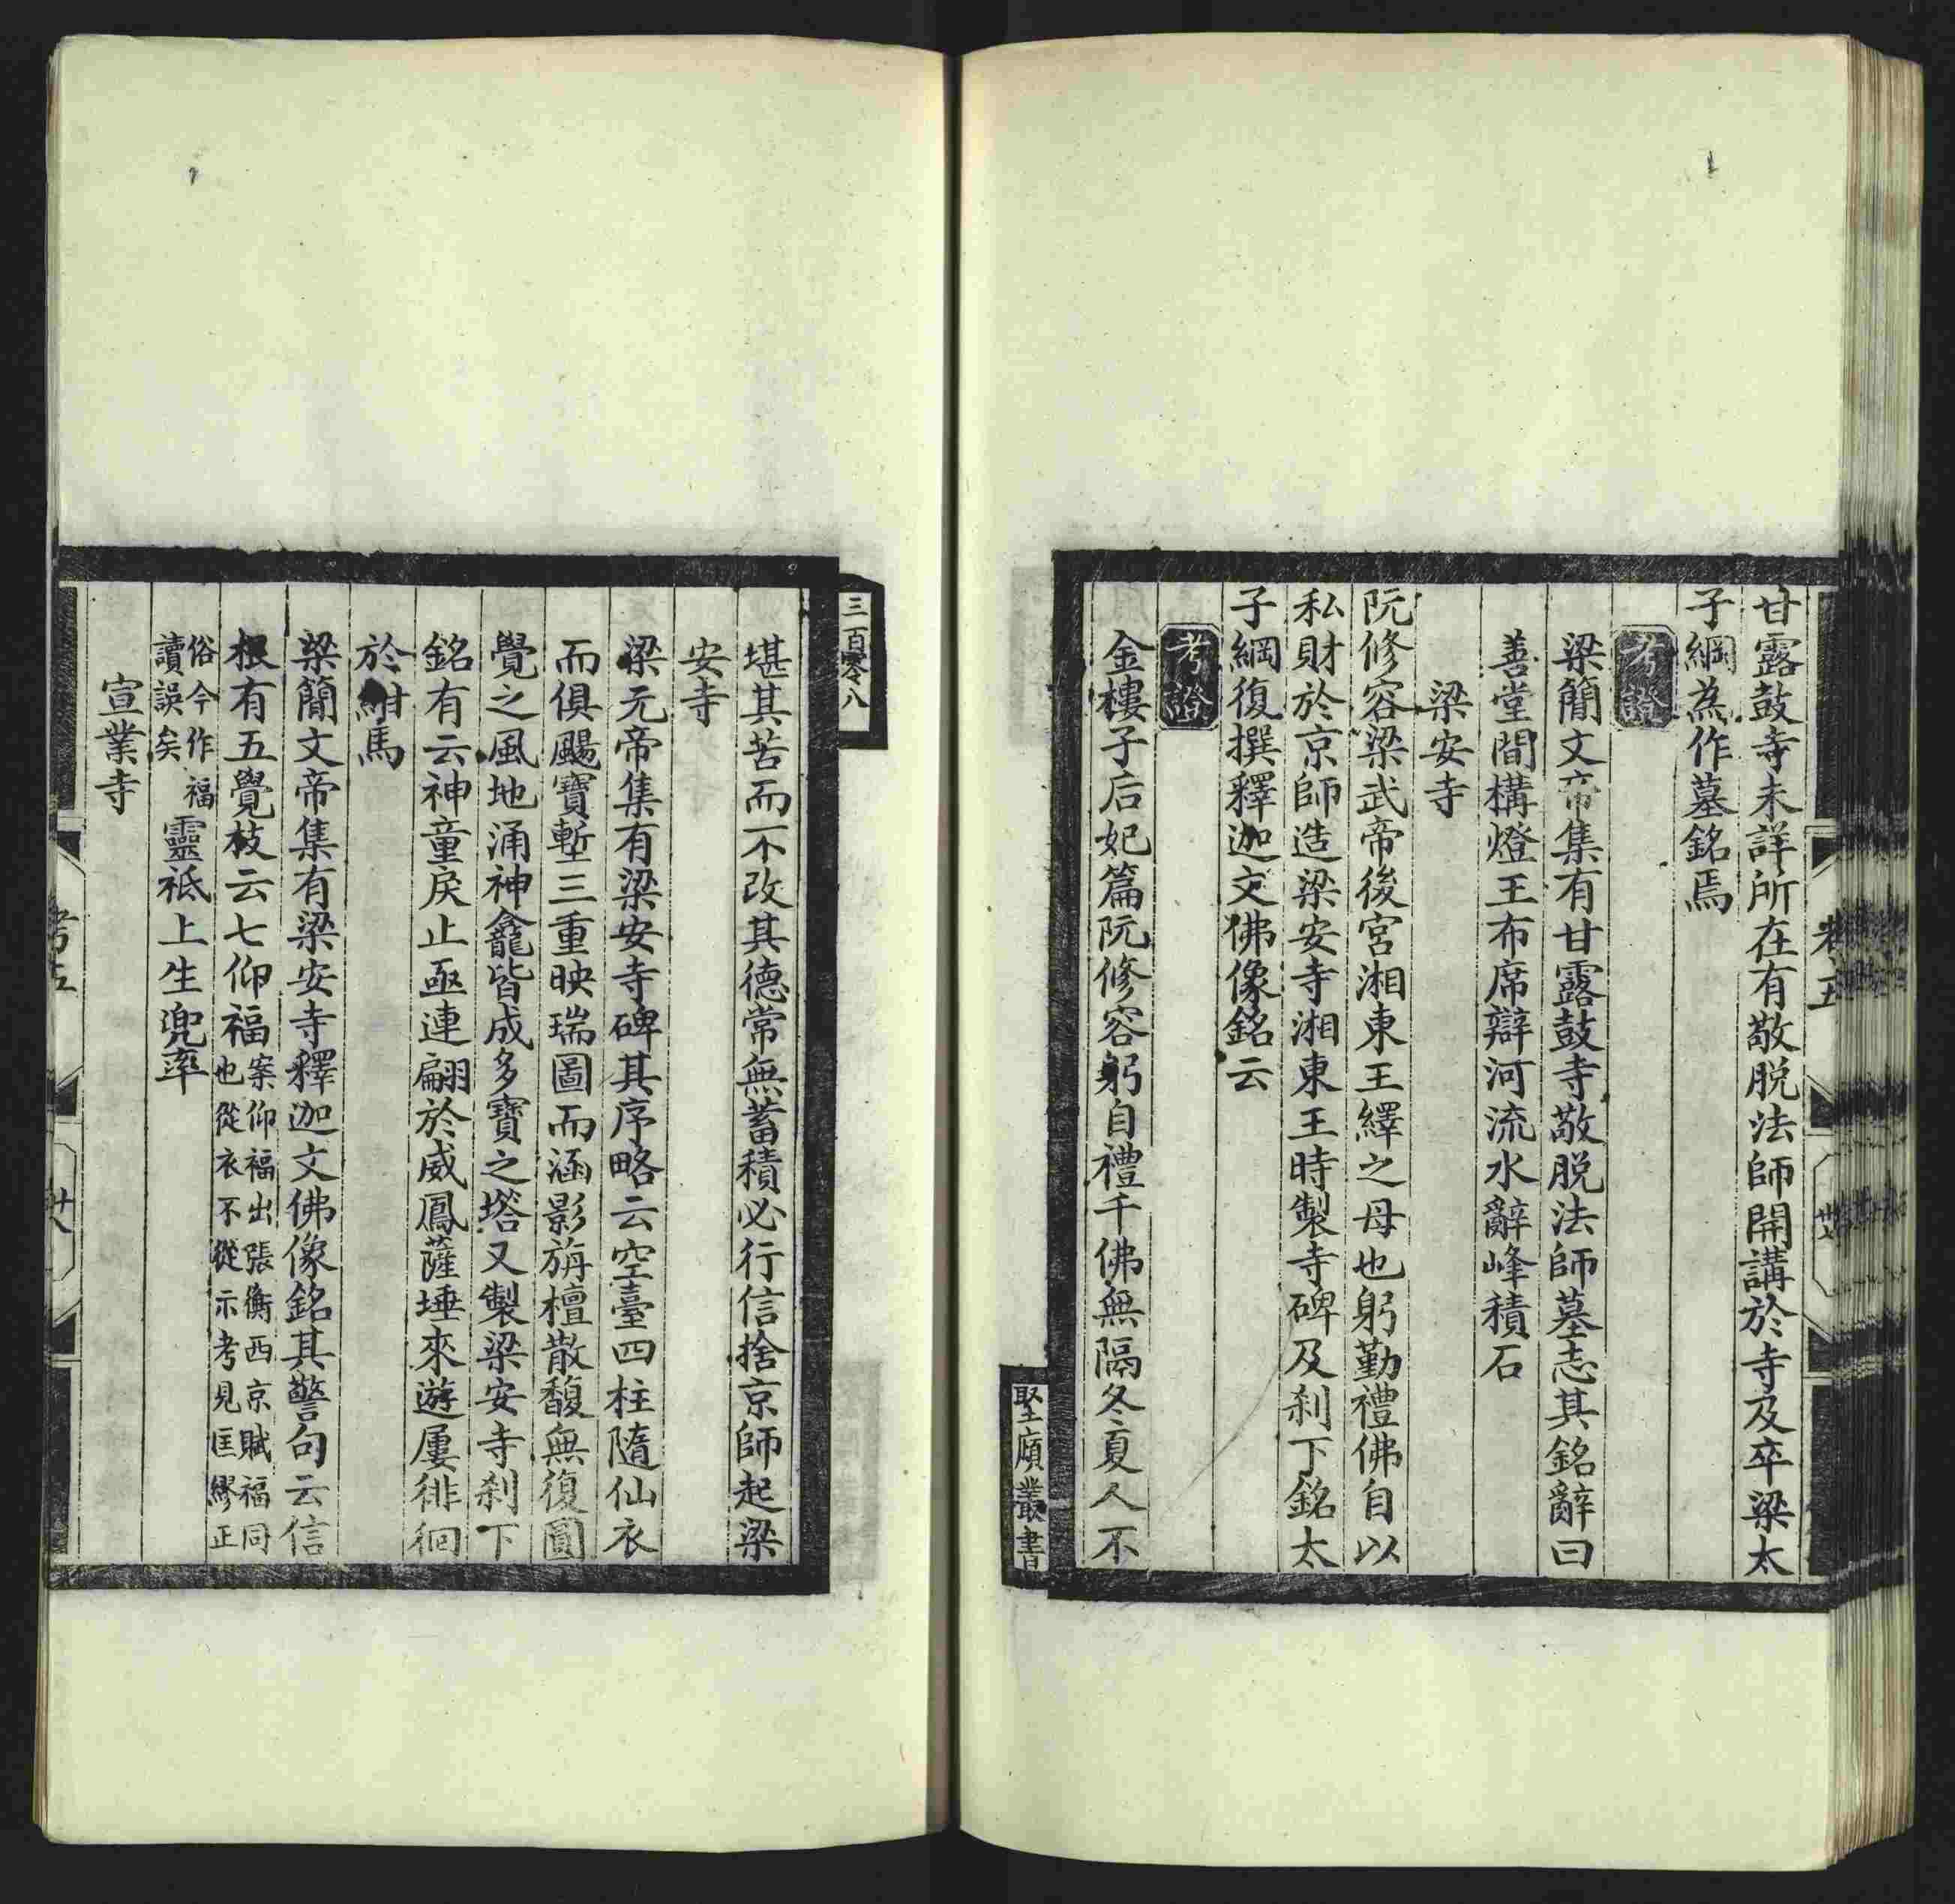 甘露鼓寺未詳所在有敬脱法師開講於寺及卒梁太
子綱為作墓銘焉
考證
梁簡文帝集有甘露鼓寺敬脱法師墓志其銘辭曰
善堂間構燈王布席辯河流水辭峰積石
梁安寺
阮修容梁武帝後宮湘東王繹之母也躬勤禮佛自以
私財於京師造梁安寺湘東王時製寺碑及刹下銘太
子綱復撰釋迦文佛像銘云
考證
金樓子后妃篇阮修容躬自禮千佛無隔冬夏人不
堅廎叢書
三百零八
堪其苦而不改其德常無蓄積必行信捨京師起梁
安寺
梁元帝集有梁安寺碑其序略云空臺四柱隨仙衣
而俱颺寶塹三重映瑞圖而涵影旃檀散馥無復圓
覺之風地涌神龕皆成多寶之塔又製梁安寺刹下
銘有云神童戾止亟連翩於威鳳薩埵來遊屢徘徊
於紺馬
梁簡文帝集有梁安寺釋迦文佛像銘其警句云信
根有五覺枝云七仰福案仰福出張衡西京賦福同
也從衣不從示考見匡繆正
俗今作福
讀誤矣
靈祇上生兜率
宣業寺
考五
卷五